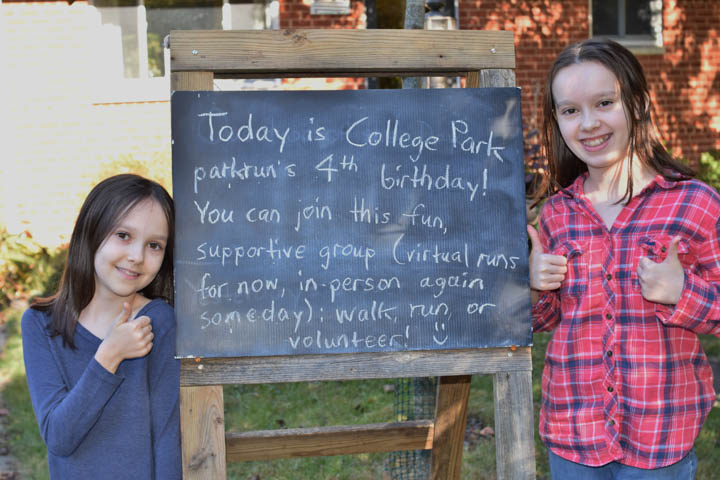 Today is College Park
parkrun's 4th birthday!
You can join this fun,
supportive group (virtual runs
for now, in-person again
someday): walk, run, or
volunteer! :)